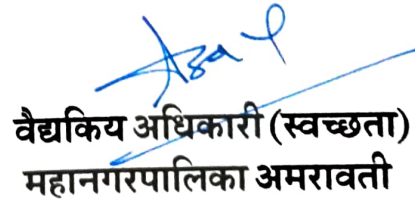 वैद्यकिय अधिकारी (स्वच्छता)
महानगरपालिका अमरावती